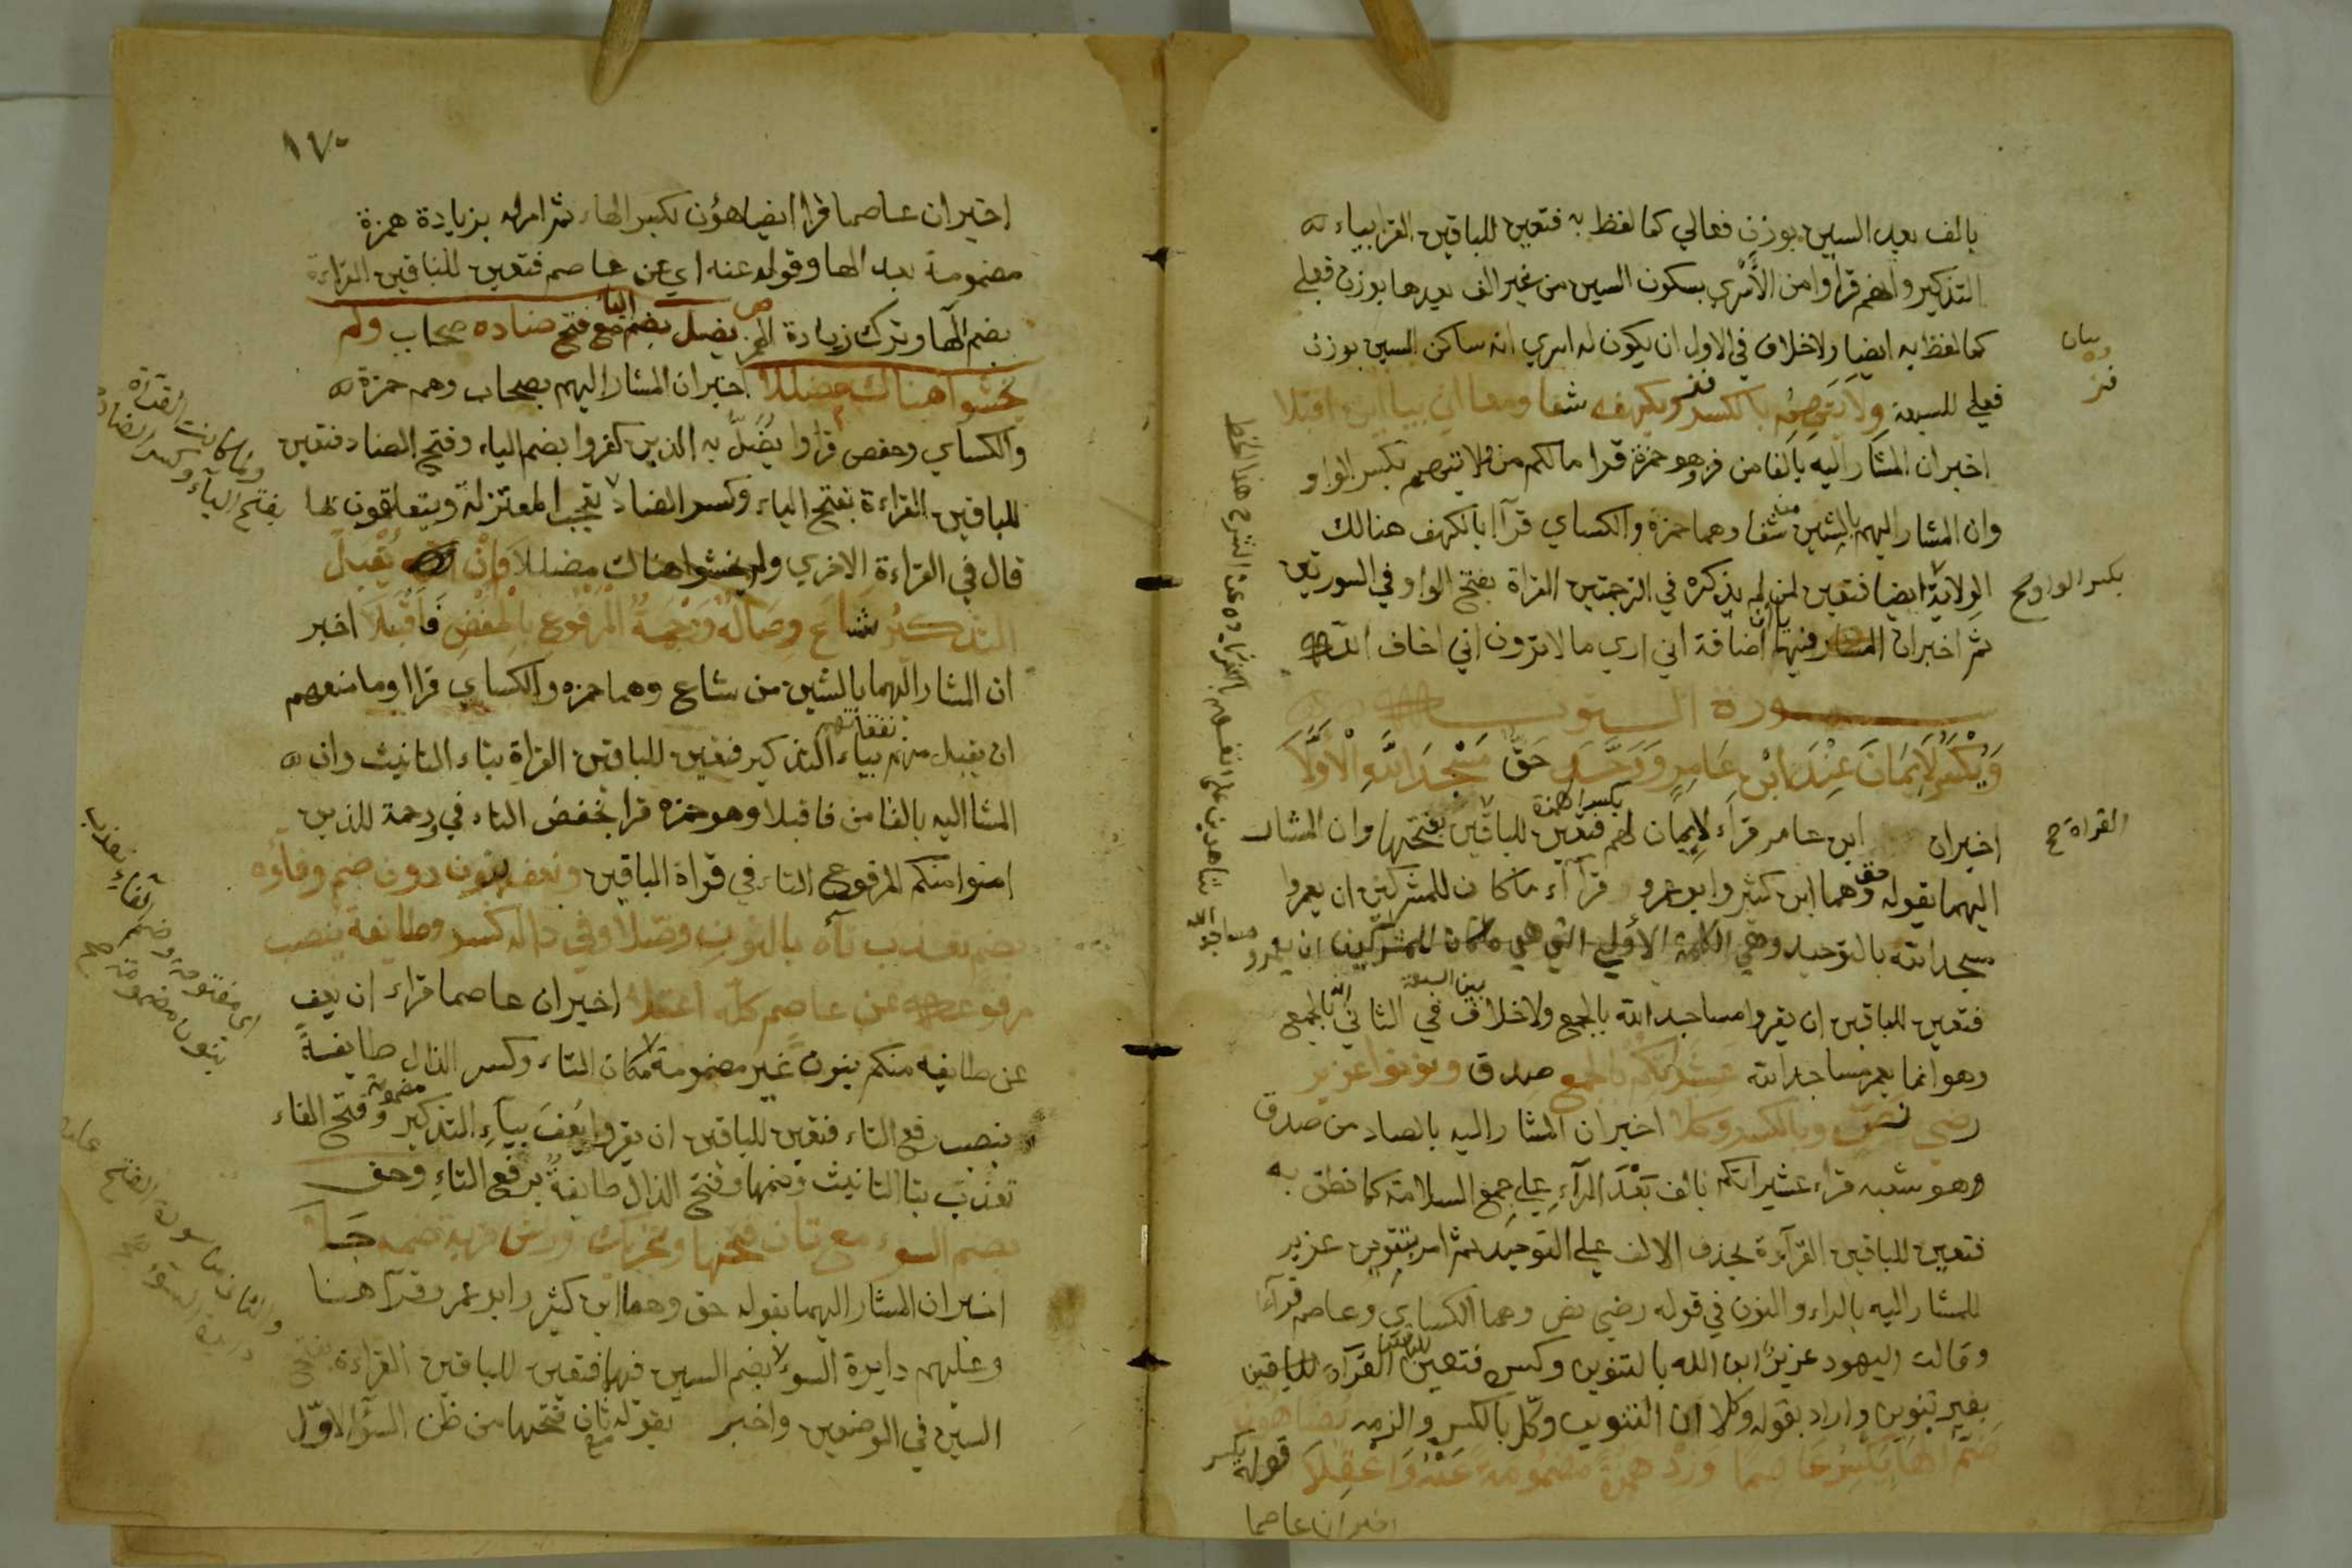 بالف بعد السين بوزن فعالي كما لفظ به فتعين للباقين القرا بياء
التذكير وانهم قراوا من الأَسْرى بسكون السين من غير الف بعدها بوزن فعلى
كما لفظ به ايضا ولاخلاف في الاول ان يكون له اسري انه ساكن السين بوزن
فعلى للسبعة ولايتهم بالكسر فز وبكهفه شفا ومعا اني بياأين اقبلا
اخبر ان المشار اليه بالفا من فز وهو حمزة قرا مالكم من ولايتهم بكسر الواو
وان المشار اليهم بالشين من شفا وهما حمزة والكساي قرآ بالكهف هنالك
الولاية ايضا فتعين لمن لم يذكره في الترجمتين القراة بفتح الواو في السورتين
ثم اخبر ان فيها اضافة اني اري مالا ترون اني اخاف الله
سورة التوبة
وَيُكْسَرُ لَاَيمَانَ عِنْدَ ابْنِ عَامِرٍ وَوَحَّدَ حَقٌّ مَسْجِدَ اللهِ الْاَوَّلَا
اخبر ان ابن عامر قرأ لاِيمان لهم بكسر الهمزة فتعين للباقين بفتحها وان المشار
اليهما بقوله حق وهما ابن كثير وابو عمرو قرآ ما كان للمشركين ان يعمروا
مسجد الله بالتوحيد وهي الكلمة الأولى التي هي ما كان للمشركين ان يعمروا
فتعين للباقين ان يقروا مساجد الله بالجمع ولاخلاف بين السبعة في الثاني انه بالجمع
وهو انما يعمر مساجد الله عشيراتكم بالجمع صدق ونونوا عزير
رضي نص وبالكسر وكلا اخبر ان المشار اليه بالصاد من صدق
وهو شعبه قراء عشيراتكم بالف بَعْدَ الرآءِ على جمع السلامة كما نطق به
فتعين للباقين القرآءة بحذف الالف على التوحيد ثم امر بتنوين عزير
للمشار اليه بالراء والنون في قوله رضي نص وهما الكساي وعاصم قرآ
وقالت اليهود عزيرٌ ابن الله بالتنوين وكسره فتعين القرآة للباقين
بغير تنوين واراد بقوله وكلا ان التنوين وكل بالكسر والزمه يضاهون
ضم الها يكسر عاصما وزد همزة مضمومة عنه واعقلا قوله يكسر
اخبر ان عاصما
بيان
بكسر الواو صح
القراة صح
١٧٠
اخبر ان عاصما قرا يضاهؤن بكسر الهاء ثم امر له بزيادة همزة
مضمومة بعد الها وقوله عنه اي عن عاصم فتعين للباقين القراءة
بضم الها وترك زيادة الهمز يضل بضم اليا مع فتح ضاده صحاب ولم
يخشوا هناك مضللا اخبر ان المشار اليهم بصحاب وهم حمزة
والكساي وحفص قراوا يُضَلُّ به الذين كفروا بضم الياء وفتح الضاد فتعين
للباقين القراءة بفتح الياء وكسر الضاد يتجب المعتزلة ويتعلقون بها
قال في القراءة الاخري ولم يخشوا هناك مضللا وَأنْ تُقبلَ
التذكيرُ شَاعَ وِصَالُهُ وَرَحْمَةُ الْمَرْفوُعُ بِالْخفْضِ فَاقْبَلَا اخبر
ان المشار اليهما بالشين من شاع وهما حمزه والكساي قراا وما منعهم
ان يقبل منهم نفقاتهم بياء التذكير فتعين للباقين القراة بتاء التانيث وان
المشا اليه بالفا من فاقبلا وهو حمزه قرا بخفض التاء في ورحمة للذين
امنوا منكم المرفوع التاء في قراة الباقين ونعف بنون دون ضم وفاؤه
يضم تعذب تاه بالنون وصلا وفي ذاله كسر وطايفة بنصب
مرفوعه عن عاصم كله اعتلا اخبر ان عاصما قراء ان نعف
عن طايفه منكم بنون غير مضمومة مكان التاء وكسر الذال طايفةً
بنصب رفع التاء فتعين للباقين ان يقروا يُعْفَ بياءِ التذكير مضمومة وفتح الفاء
تعذب بتا التانيث وضمها وفتح الذال طايفةٌ برفع التاءِ وحق
بضم السوء مع ثان فتحها وتحريك ورش قربة ضمه جلا
اخبر ان المشار اليهما بقوله حق وهما ابن كثير وابو عمرو قرآ هنا
وعليهم دايرة السوء بضم السين فيها فتعين للباقين القراءة بفتح
السين في الموضعين واخبر بقوله مع ثان فتحها من ظن السؤ الاوّل